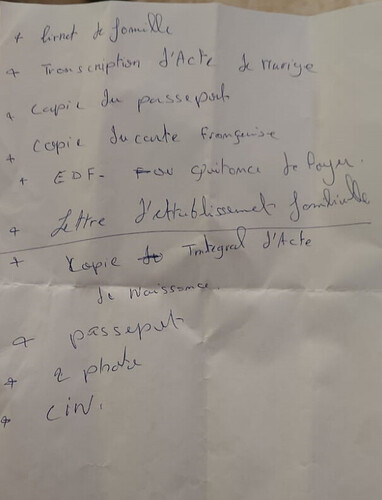 + livret de famille
+ Transcription d'Acte de Mariage
+ copie du passeport
+ copie du carte française
+ EDF - ou quitance de loyer.
+ Lettre d'ettablissement familialle
+ copie Intégral d'Acte
de Naissance.
+ passeport
+ 2 photo
+ CIN.